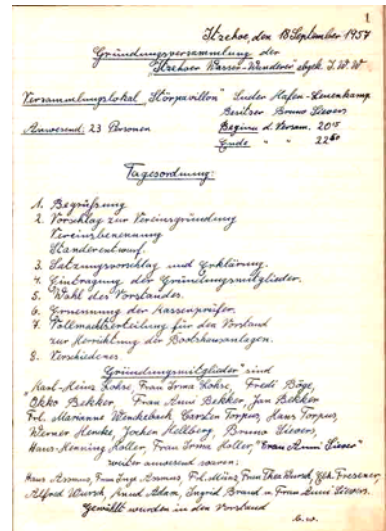 1
Itzehoe, den 18 September 1957
Gründungsversammlung der
"Itzehoer Wasser-Wanderer" abgek. I.W.W
Versammlungslokal "Störpavillon" Suder Hafen-Leuenkamp
Besitzer Bruno Sievers
Anwesend: 23 Personen Beginn d. Versam. 20
Ende " " 22
Tagesordnung:
1. Begrüßung
2. Vorschlag zur Vereinsgründung
Vereinsbenennung
Standerentwurf.
3. Satzungsvorschlag und Erklärung.
4. Eintragung der Gründungsmitglieder.
5. Wahl des Vorstandes.
6. Ernennung der Kassenprüfer.
7. Vollmachtserteilung für den Vorstand
zur Herrichtung der Bootshausanlagen.
8. Verschiedenes.
"Gründungsmitglieder" sind
Karl-Heinz Lohse, Frau Irma Lohse, Fredi Böge,
Okko Bekker, Frau Anni Bekker, Jan Bekker
Frl. Marianne Wenckebach, Carsten Torpus, Hans Torpus,
Werner Hencke, Jochen Hellberg, Bruno Sievers,
Hans-Henning Holler, Frau Irma Holler, "Frau Anni Siever"
weiter anwesend waren:
Hans Assmus, Frau Inge Assmus, Frl. Frau Thea Wursch, Fresener,
Alfred Wursch, Knud Adam, Ingrid Brand u. Frau Anni Sievers.
Gewählt wurden in den Vorstand
b.w.